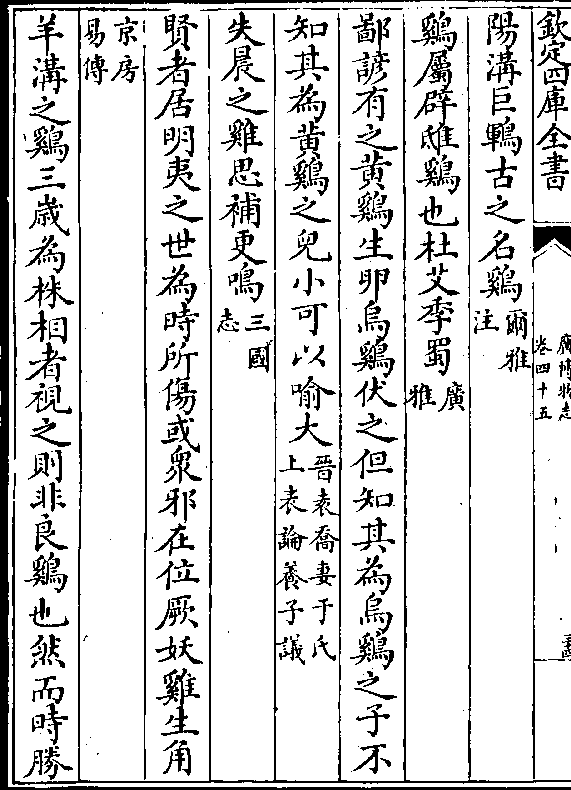 欽定四庫全書
廣博物志
卷四十五
陽溝巨鶤古之名鷄爾雅注
鷄屬辟雎鷄也杜艾季蜀廣雅
鄙諺有之黄鷄生卵烏鷄伏之但知其為烏鷄之子不
知其為黄鷄之兒小可以喻大晉袁喬妻于氏上表論養子議
失晨之雞思補更鳴三國志
賢者居明夷之世為時所傷或衆邪在位厥妖雞生角
京房易傳
羊溝之鷄三歳為株相者視之則非良鷄也然而時勝